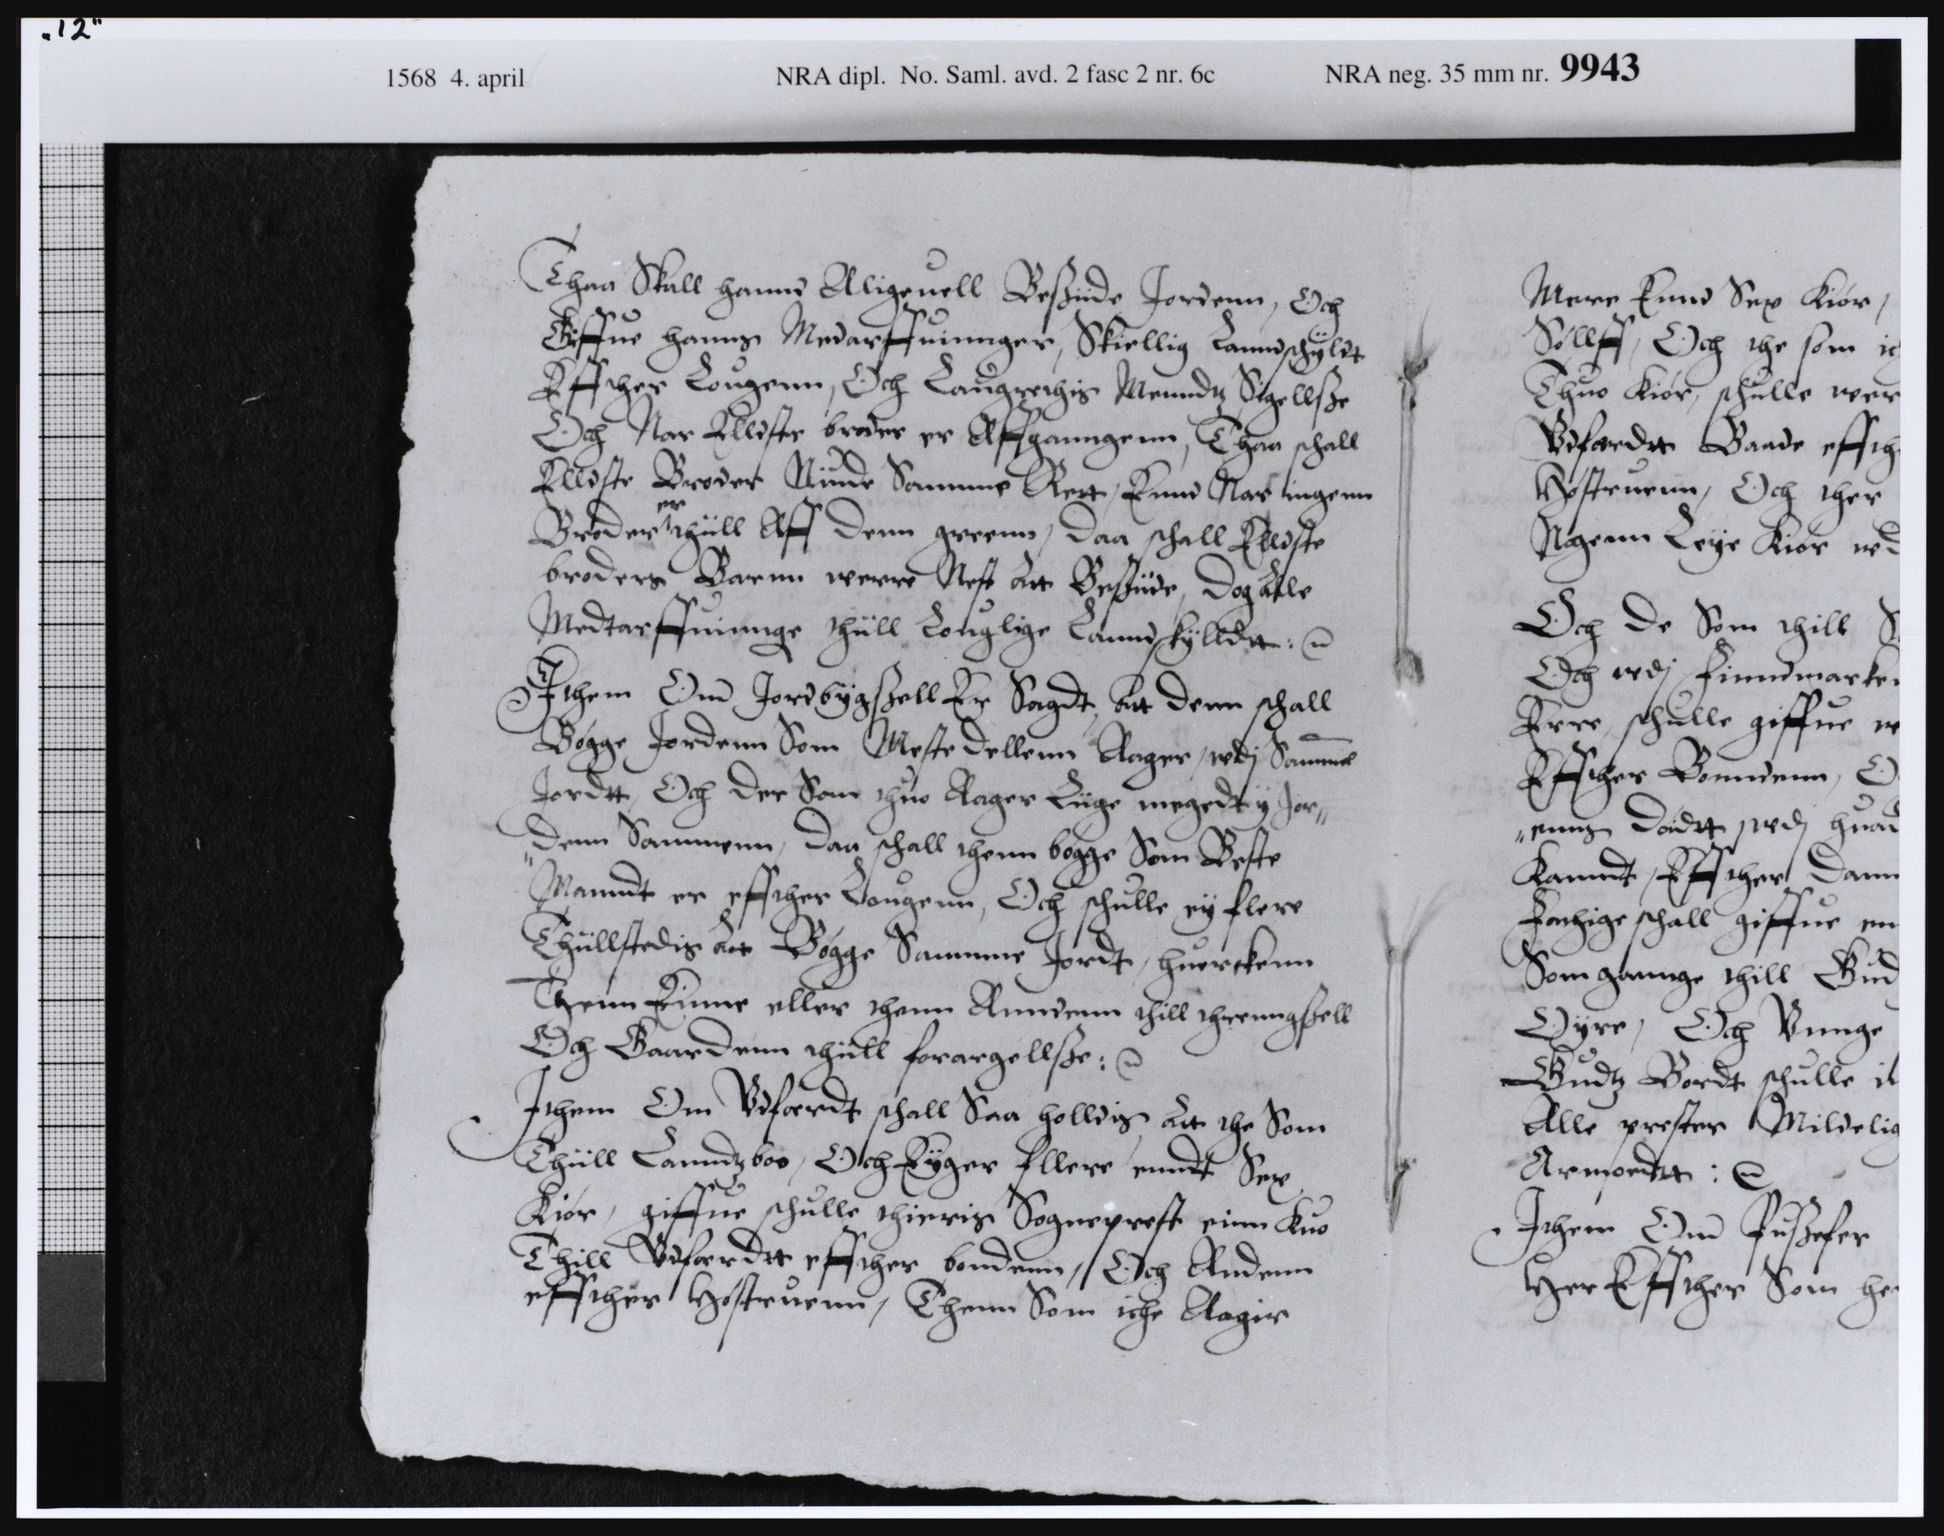 „12"
1568 4. april NRA dipl. No. Saml. avd. 2 fasc 2 nr. 6c NRA neg. 35 mm nr. 9943
Thaa Skall hannd Aligeuell Besßiide Jordenn, Och
Giffue hanns Medarffuinnger, Skiellig Lanndschyldt
Effther Lougenn, Och Laugrethis Menndtz Sigellsße
Och Nar Elldste broder er Affganngenn, Thaa schall
Elldste Broder Niude Samme Rett, Ennd Nar ingenn
Broder er thiill Aff denn greenn, daa schall Elldste
broders Barnn werre Nest att Besßiide, dog alle
Medtarffuinnge thiill Louglige Lanndskylldtt :
Ithem Om Jordbygßell Er Sagdt, att denn schall
Bøgge Jordenn Som Meste dellenn Aager, wdj Samme
Jordtt, Och der Som thuo Aager Liige megedt y Jor„
„denn Sammenn, daa schall thenn bøgge Som Beste
Manndt er effther Lougenn, Och schulle ey flere
Thiillstedis att Bøgge Samme Jordt, huerckenn
Thenn Einne eller thenn Anndenn thill threnngßell
Och Gaardenn thiill forargellsße :
Ithem Om Vdfærdt schall Saa holldis, att the Som
Thiill Lanndtz boo, Och Eyger fllere enndt Sex
Kiør, giffue schulle thieris Sogneprest einn Kuo
Thill Vdfærdtt effther bondenn, Och Andenn
effther Høstruenn, Thenn Som iche Aagir
Mere Ennd Sex Kiør,
Søllff, Och the som ic
Thuo Kiør, schulle wer
Vdfærdtt Baade effth
Høstruenn, Och ther
Nogenn Leye Kiør wd
Och de Som thill S
Och wdj Finndmarken
Erre, schulle giffue w
Effther Bonndenn, O
„enns dødtt wdj huad
Kanndt, Effther dann
Fathige schall giffue en
Som gaannge thill Gud
Øyre, Och Vnnge
Gudtz Bordt schulle i
Alle prester Mildelig
Armoedtt :
Ithem Om Jusßefer
Her Effther Som he